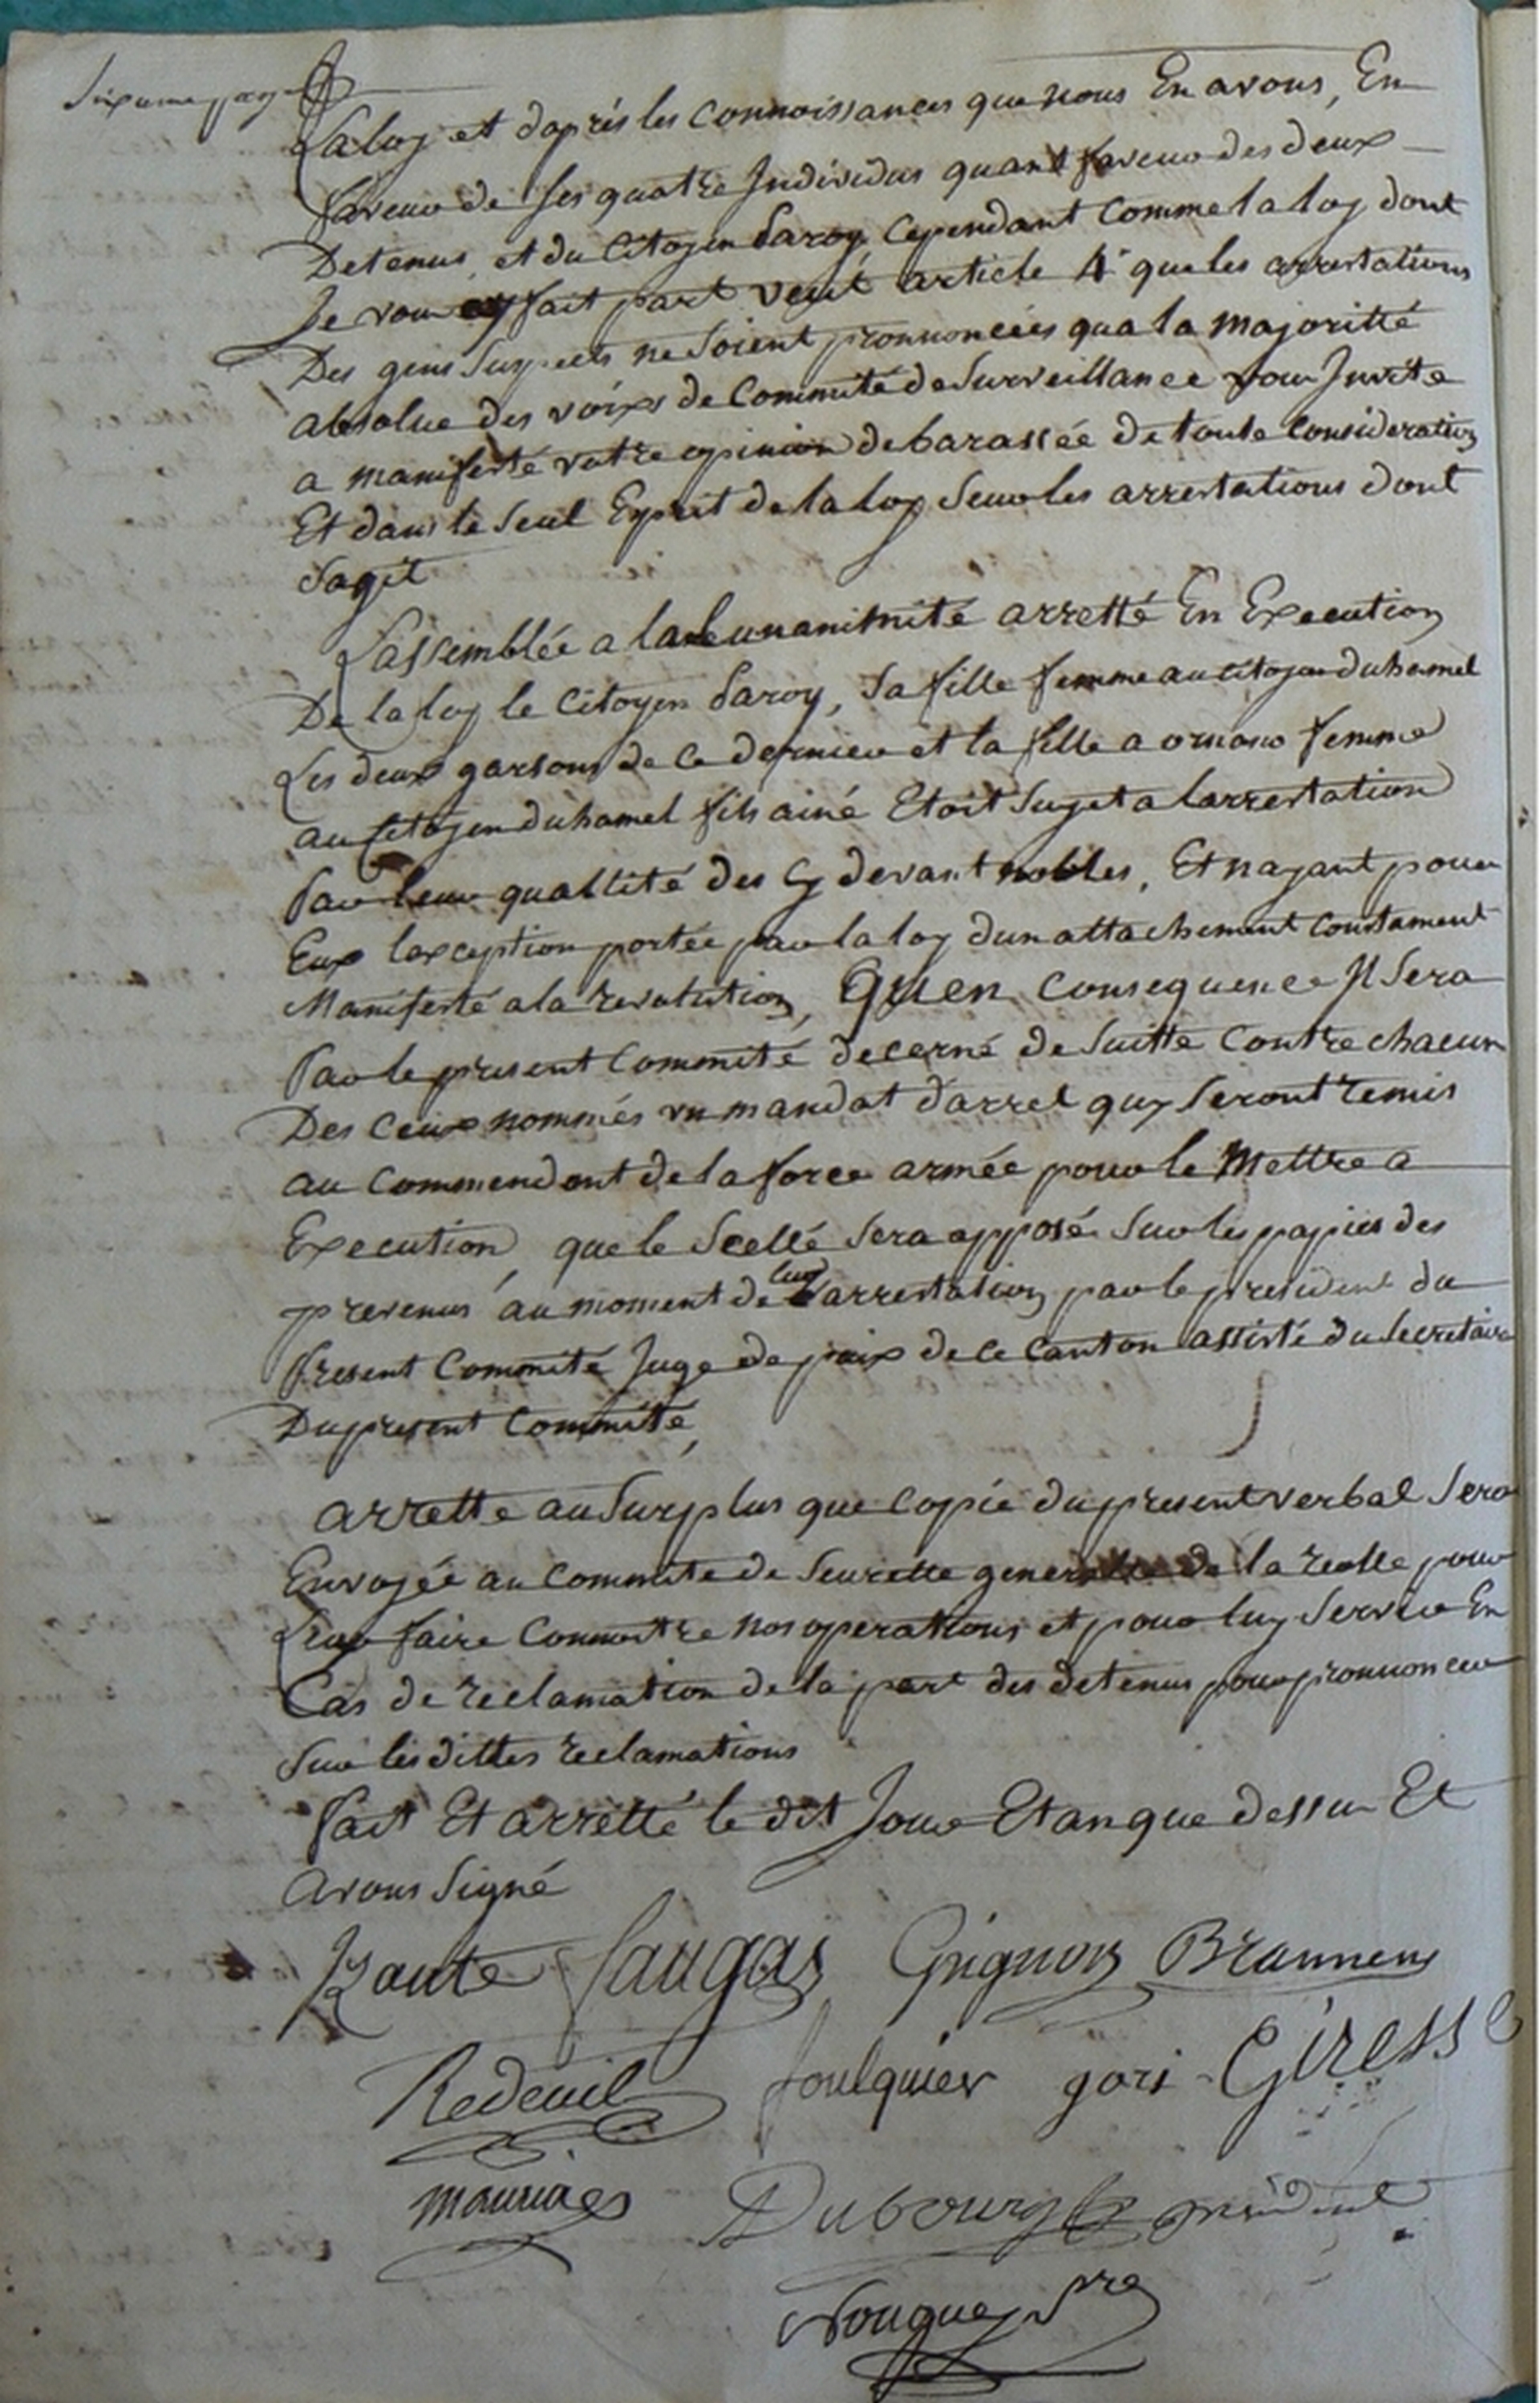 Sixieme page
La loy et daprés les connoissances que nous En avons, En
faveur de ses quatre Individus quant faveur des deux
Detenus, et du Citoyen Saroy, Cependant Comme la loy dont
Je vous ay fait part veut article 4e que les arrestations
Des gens Suspects ne Soient prononcées qua la majoritté
absolue des voixs de Commité de Surveillance vous Invite
a manifesté votre opinion debarassée de toute Consideration
Et dans le Seul Esprit de la loy Seur les arrestations dont
Sagit
Lassemblée a la unanimité arretté En Execution
De la loy le Citoyen Saroy, Sa fille femme au Citoyen duhamel
Les deux garsons de Ce dernieur et la fille a ornano femme
au Citoyen duhamel fils ainé Etoit Sujet a larrestation
Par leur quallité des Cy devant nobles, Et nayant pour
Eux lexception portée par la loy dun attachement Constament
Manifesté a la revolution, Quen Consequence Il Sera
Par le present Commité decerné de Suitte Contre chacun
Des Ceux nommés un mandat darret quy Seront remis
au Commendant de la force armée pour le Mettre a
Execution, que le Scellé Sera apposé Sur les papies des
prevenus au moment de leur arrestation par le president du
Present Commité Juge de paix de Ce Canton assisté du Secretaire
Du present Commité,
arrette au Surplus que Copie du present verbal Sera
Envoyée au Commite de Seurette generalle de la reolle pour
Leur faire Connoitre nos operations et pour luy Servir En
Cas de reclamation de la part des detenus pour prononcer
Sur les dittes reclamations
fait Et arretté le dit Jour Et an que dessus Et
avons Signé
Kaute Saugas Grignon Brannens
Redeuil foulquier gori Giresse
mauriac Dubourg president
Nouguey Sre